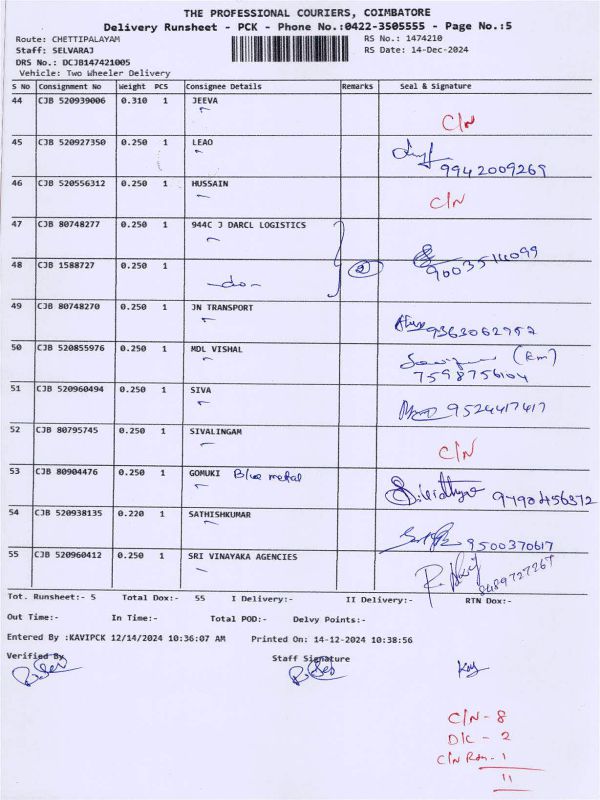 THE PROFESSIONAL COURIERS, COIMBATORE
Delivery Runsheet - PCK - Phone No.:0422-3505555 - Page No.:5
Route: CHETTIPALAYAM RS No.: 1474210
Staff: SELVARAJ RS Date: 14-Dec-2024
DRS No.: DCJB147421005
Vehicle: Two Wheeler Delivery
S No Consignment No Weight PCS Consignee Details Remarks Seal & Signature
44 CJB 520939006 0.310 1 JEEVA
C/N
45 CJB 520927350 0.250 1 LEAO
9942009269
46 CJB 520556312 0.250 1 HUSSAIN
C/N
47 CJB 80748277 0.250 1 944C J DARCL LOGISTICS
48 CJB 1588727 0.250 1 -do- 2
49 CJB 80748270 0.250 1 JN TRANSPORT
9363062952
50 CJB 520855976 0.250 1 MDL VISHAL
(Rm)
7598756104
51 CJB 520960494 0.250 1 SIVA
9524417417
52 CJB 80795745 0.250 1 SIVALINGAM
C/N
53 CJB 80904476 0.250 1 GOMUKI Blue metal
9790456372
54 CJB 520938135 0.220 1 SATHISHKUMAR
9500370617
55 CJB 520960412 0.250 1 SRI VINAYAKA AGENCIES
8489727267
Tot. Runsheet:- 5 Total Dox:- 55 I Delivery:- II Delivery:- RTN Dox:-
Out Time:- In Time:- Total POD:- Delvy Points:-
Entered By :KAVIPCK 12/14/2024 10:36:07 AM Printed On: 14-12-2024 10:38:56
Verified By Staff Signature
C/N - 8
D/C - 2
C/N - 1
11